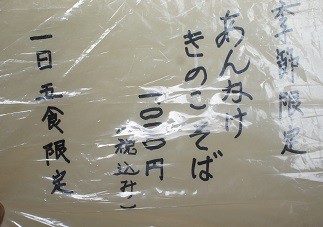 季節限定
あんかけ
きのこそば
一〇〇〇円
(税込み)
一日五食限定